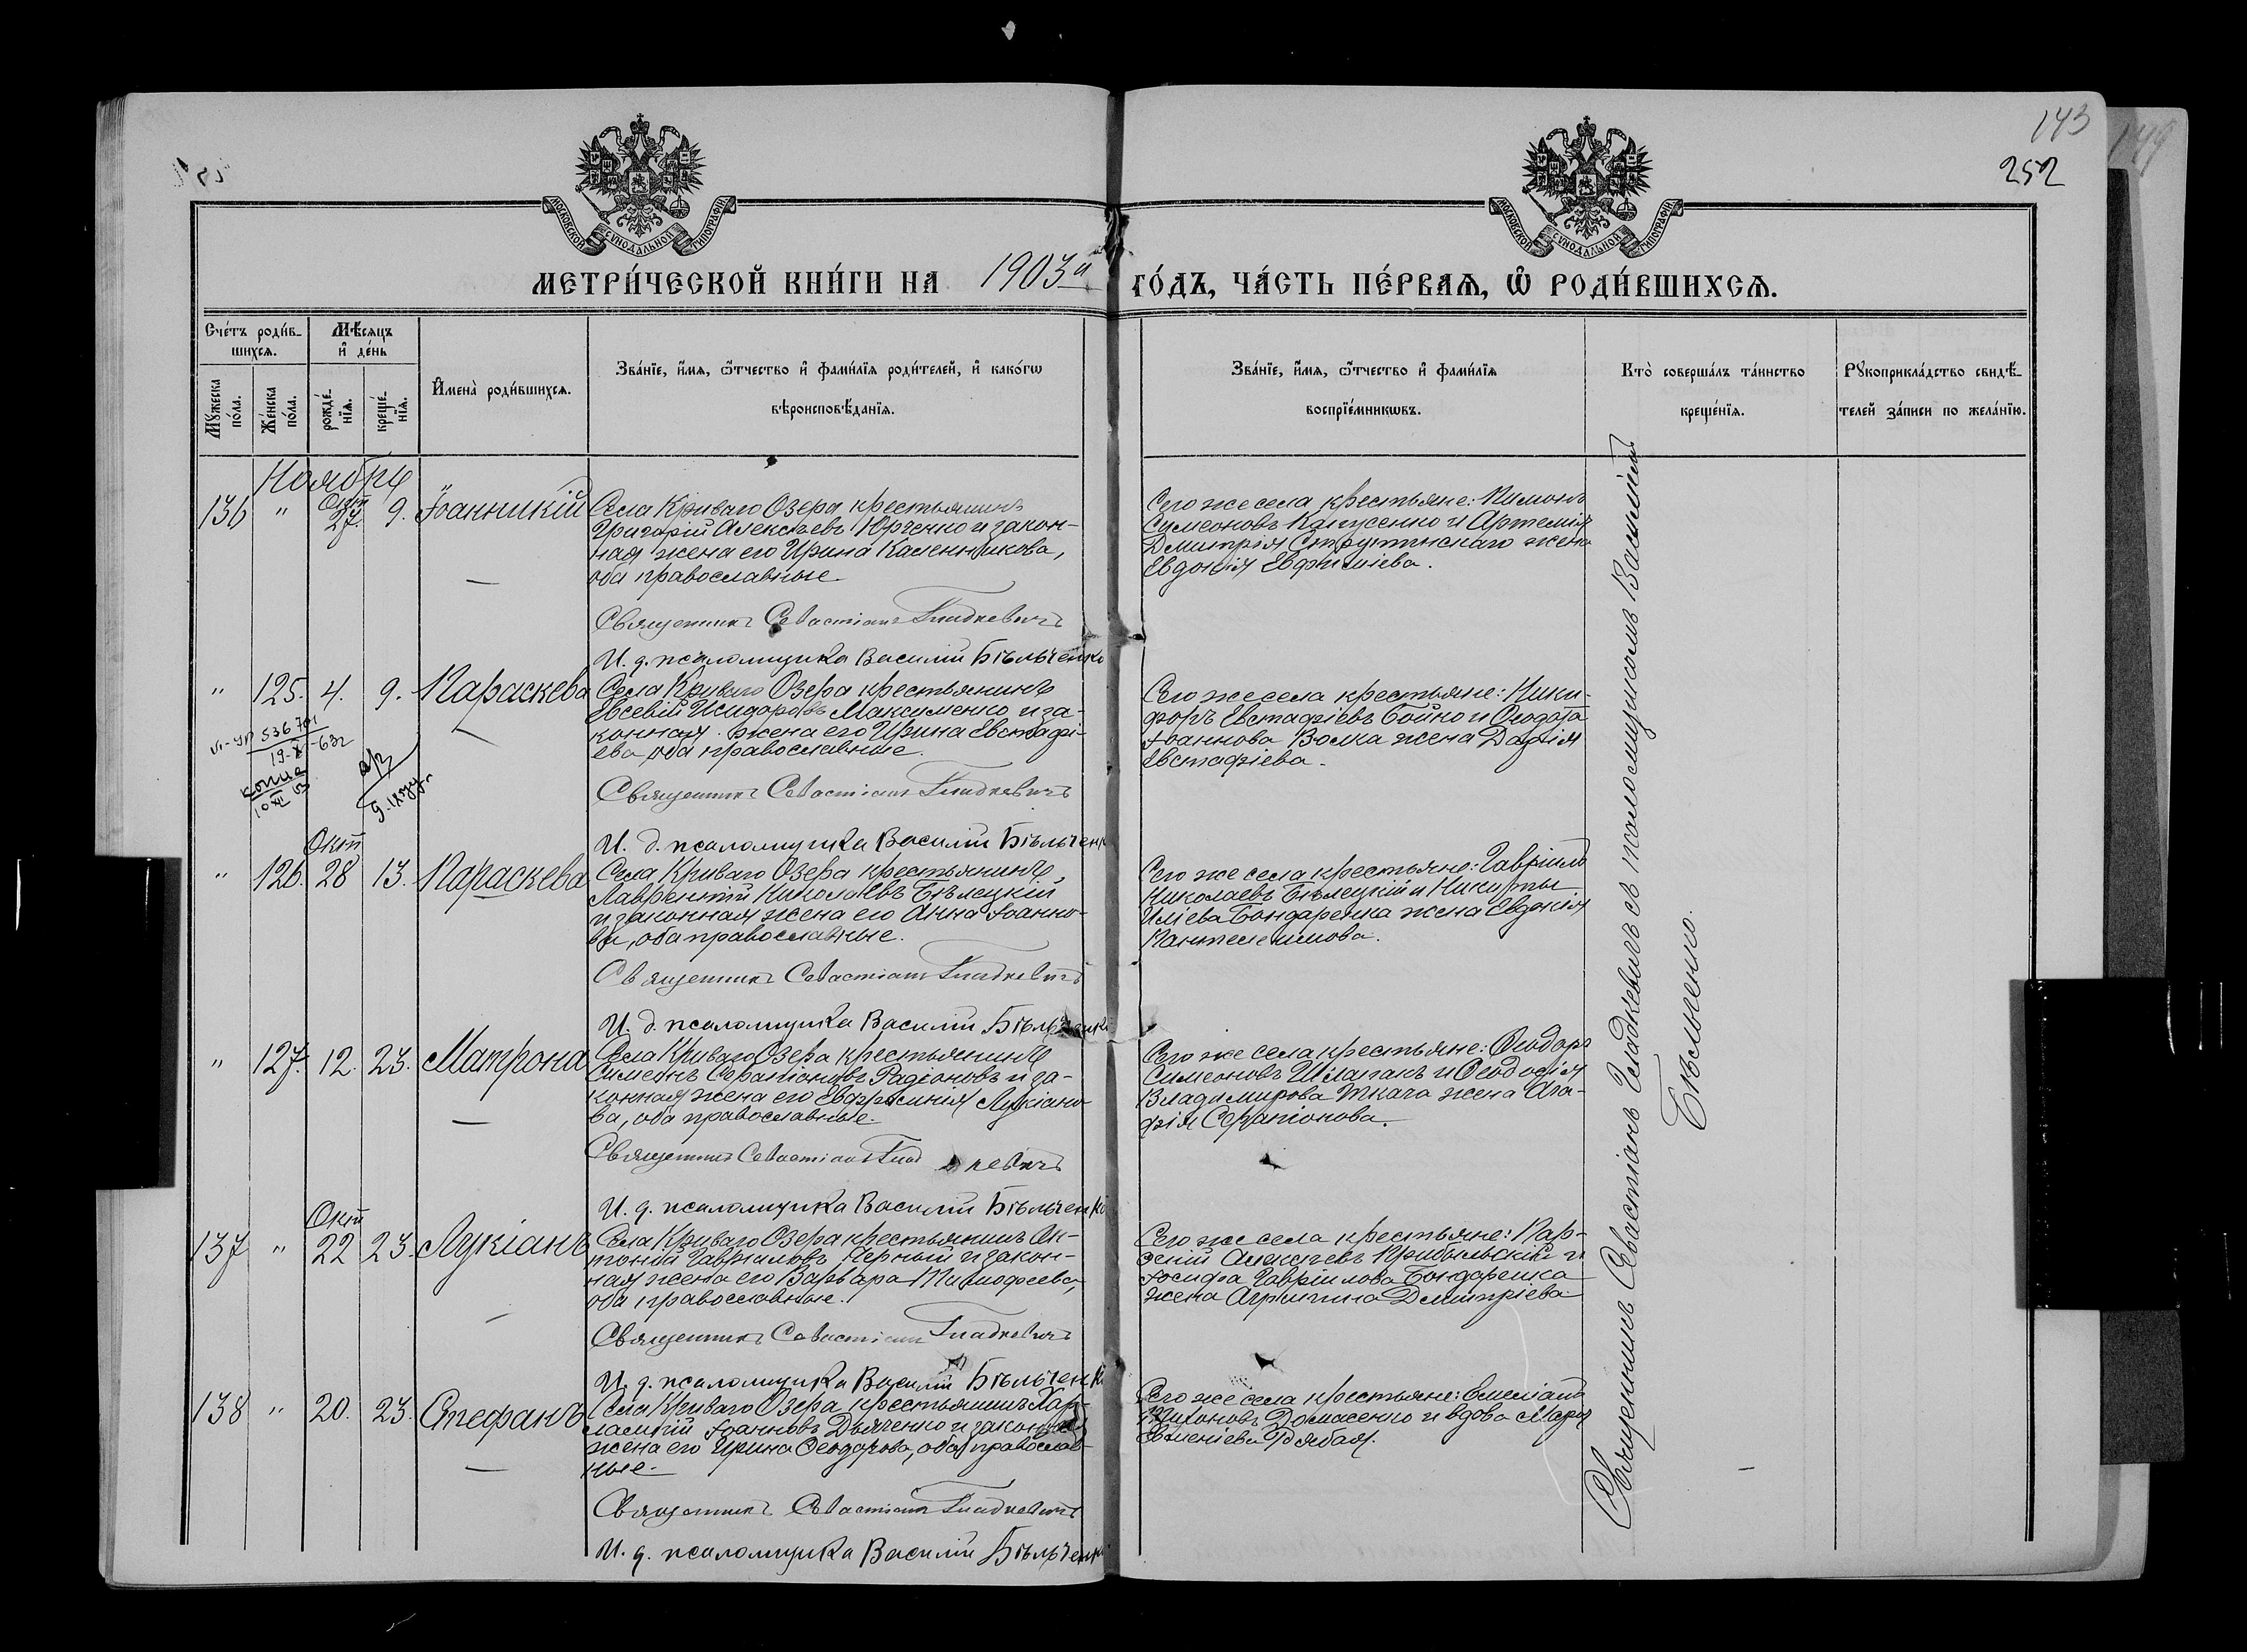 143
149
252
МОСКОВСКОЙ СѴНОДАЛЬНОЙ ТИПОГРАФІИ
МОСКОВСКОЙ СѴНОДАЛЬНОЙ ТИПОГРАФІИ
МЕТРИ́ЧЕСКОЙ КНИ́ГИ НА 1903й ГО́ДЪ, ЧА́СТЬ ПЕ́РВАѦ, Ѡ҆ РОДИ́ВШИХСѦ.
Сче́тъ роди́в-
шихсѧ.
Мѣ́сѧцъ
и҆ де́нь
Мꙋ́жеска
по́ла.
Же́нска
по́ла.
рожде́-
нїѧ.
креще́-
нїѧ.
И҆мена̀ роди́вшихсѧ.
Зва́нїе, и҆́мѧ, ѻ҆́тчество и҆ фами́лїѧ роди́телей, и҆ како́гѡ
вѣроисповѣ́данїѧ.
Зва́нїе, и҆́мѧ, ѻ҆́тчество и҆ фами́лїѧ
воспрїе́мникѡвъ.
Кто̀ соверша́лъ та́инство
креще́нїѧ.
Рꙋкоприкла́дство свидѣ́-
телей за́писи по жела́нїю.
Ноябрь
136 " Окт 27. 9. Іоанникій
Села Криваго Озера крестьянинъ
Григорій Алексѣевъ Юрченко и закон-
ная жена его Ирина Каленникова,
оба православные.
Священникъ Севастіанъ Гладкевичъ
И. д. псаломщика Василій Бѣльченко
Сего же села крестьяне: Пимонъ
Симеоновъ и Артемія
Дмитрія Струтинскаго жена
Евдокія Евфиміева.
" 125. 4. 9. Параскева
Села Криваго Озера крестьянинъ
Евсевій Исидоровъ Максименко и за-
конная жена его Ирина Евстафі-
ева, оба православные.
Священникъ Севастіанъ Гладкевичъ
И. д. псаломщика Василій Бѣльченко
Сего же села крестьяне: Ники-
форъ Евстафіевъ Бойко и Ѳеодота
Іоаннова Волка жена Дарія
Евстафіева.
копия
" 126. Окт 28 13. Параскева
Села Криваго Озера крестьянинъ
Лаврентій Николаевъ Бѣлецкій
и законная жена его Анна Іоанно-
ва, оба православные.
Священникъ Севастіанъ Гладкевичъ
И. д. псаломщика Василій Бѣльченко
Сего же села крестьяне: Гавріилъ
Николаевъ Бѣлецкій и Никиты
Иліева Бондаренка жена Евдокія
Пантелеимова.
" 127. 12. 23. Матрона
Села Криваго Озера крестьянинъ
Симеонъ Серапіоновъ Радіоновъ и за-
конная жена его Евфросинія Лукіано-
ва, оба православные.
Священникъ Севастіанъ Гладкевичъ
И. д. псаломщика Василій Бѣльченко
Сего же села крестьяне: Ѳеодоръ
Симеоновъ Шлапакъ и Ѳеодосія
Владимирова Ткача жена Ага-
фія Серапіонова.
137 " Окт 22 23 Лукіанъ
Села Криваго Озера крестьянинъ Ан-
тоній Гавриловъ Черный и закон-
ная жена его Варвара Тимофеева,
оба православные.
Священникъ Севастіанъ Гладкевичъ
И. д. псаломщика Василій Бѣльченко
Сего же села крестьяне: Пар-
ѳеній Алексѣевъ Прибыльскій и
Іосифа Гавріилова Бондаренка
жена Агрипина Димитріева
138 " 20. 23. Стефанъ
Села Криваго Озера крестьянинъ Хар-
лампій Іоанновъ Дьяченко и законная
жена его Ирина Ѳеодорова, оба православ-
ные.
Священникъ Севастіанъ Гладкевичъ
И. д. псаломщика Василій Бѣльченко
Сего же села крестьяне: Емеліанъ
Тихоновъ Домасенко и вдова Марія
Рябая.
Священникъ Севастіанъ Гладкевичъ съ псаломщикомъ Василіемъ
Бѣльченко.